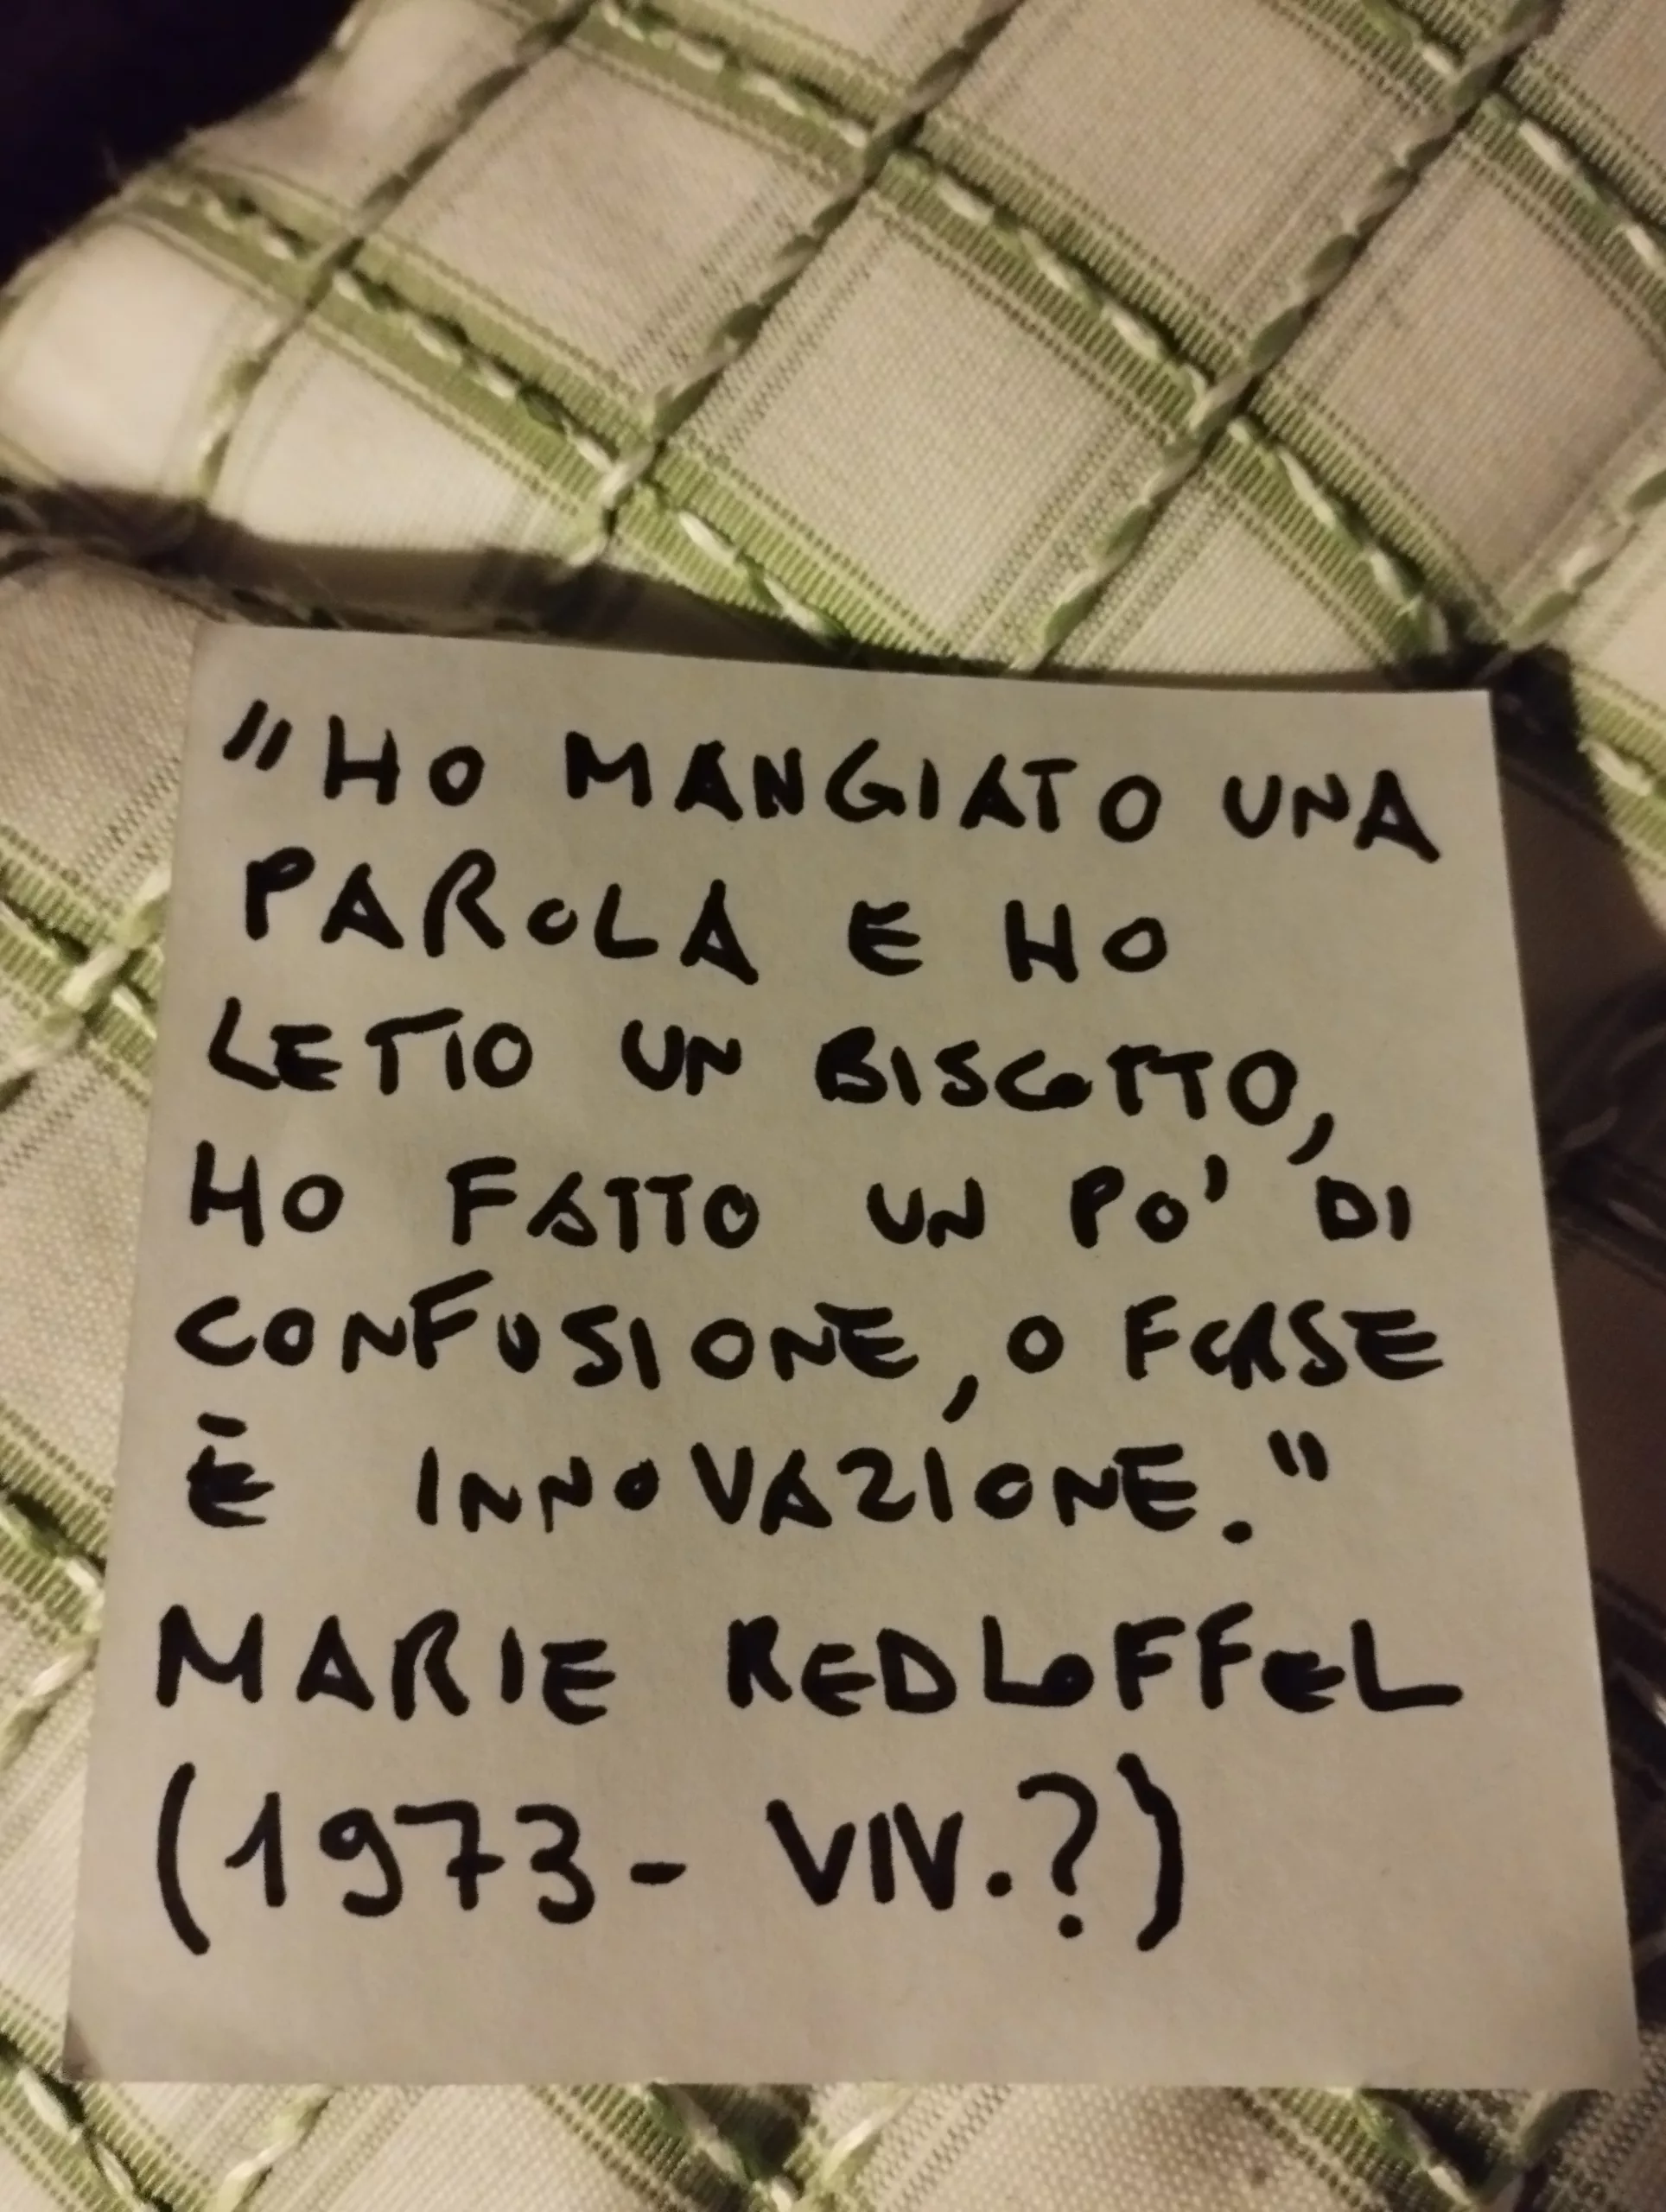 "HO MANGIATO UNA
PAROLA E HO
LETTO UN BISCOTTO,
HO FATTO UN PO' DI
CONFUSIONE, O FORSE
È INNOVAZIONE."
MARIE REDLOFFEL
(1973 - VIV.?)